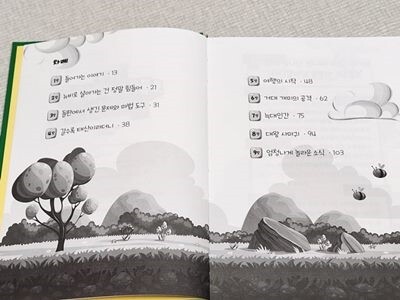 차례
1장 들어가는 이야기 · 13
2장 뉴비로 살아가는 건 정말 힘들어 · 21
3장 들판에서 생긴 문제와 마법 도구 · 31
4장 갈수록 태산이라더니 · 38
5장 여행의 시작 · 48
6장 거대 개미의 공격 · 62
7장 늑대인간 · 75
8장 대왕 사마귀 · 94
9장 엄청나게 놀라운 소식 · 103